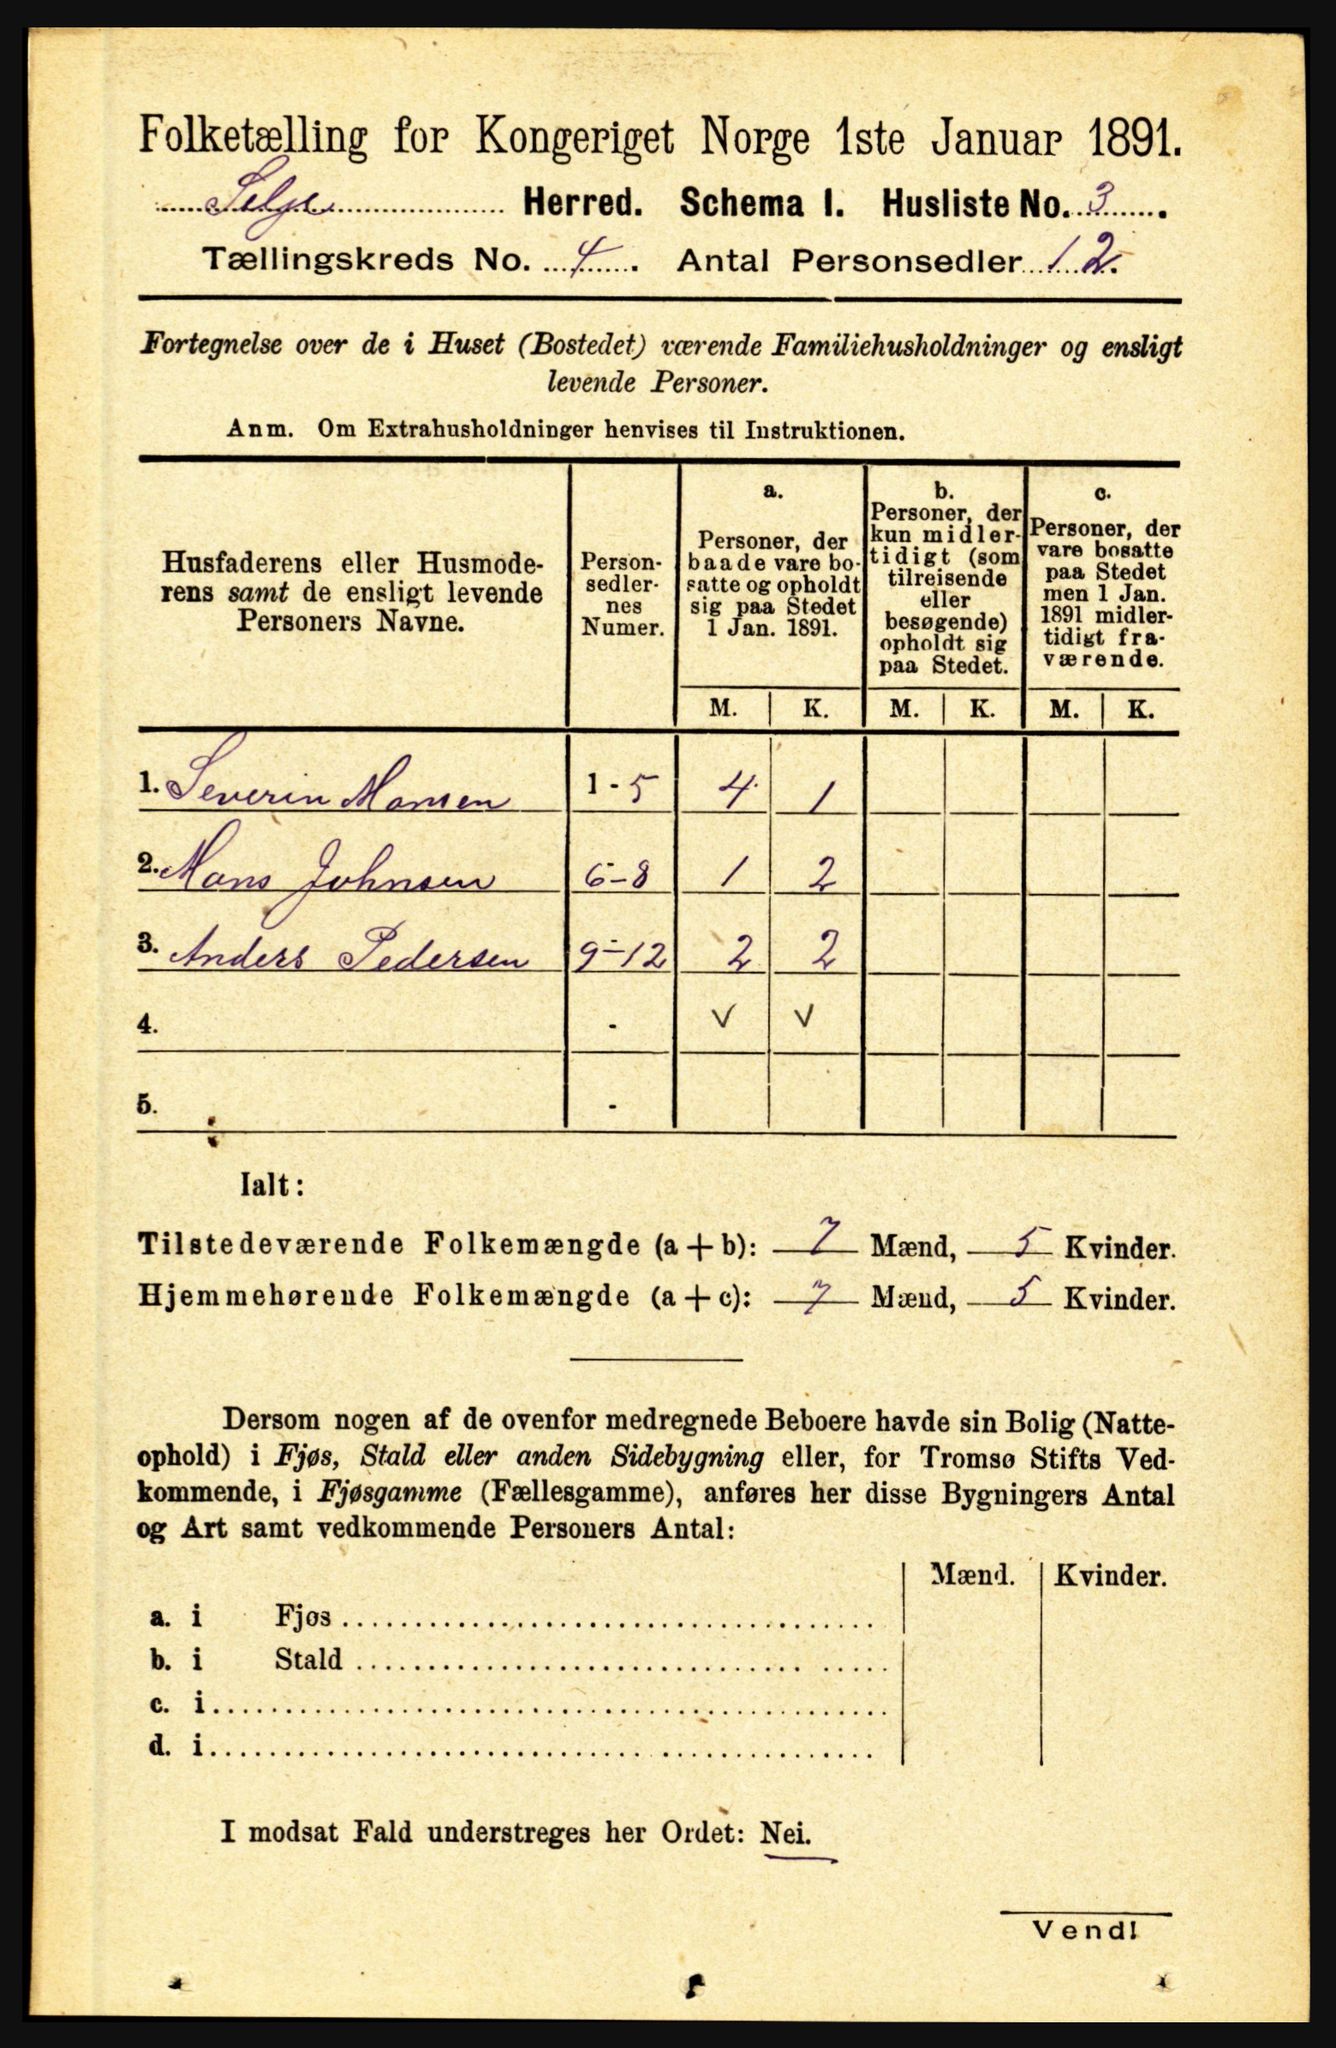 Folketælling for Kongeriget Norge 1ste Januar 1891.
Selje Herred. Schema I. Husliste No. 3.
Tællingskreds No. 4. Antal Personsedler 12.
Fortegnelse over de i Huset (Bostedet) værende Familiehusholdninger og ensligt
levende Personer.
Anm. Om Extrahusholdninger henvises til Instruktionen.
Husfaderens eller Husmode-
rens samt de ensligt levende
Personers Navne.
Person-
sedler-
nes
Numer.
a.
Personer, der
baade vare bo-
satte og opholdt
sig paa Stedet
1 Jan. 1891.
b.
Personer, der
kun midler-
tidigt (som
tilreisende
eller
besøgende)
opholdt sig
paa Stedet.
c.
Personer, der
vare bosatte
paa Stedet
men 1 Jan.
1891 midler-
tidigt fra-
værende.
M. K. M. K. M. K.
1. Severin Monsen 1-5 4 1
2. Mons Johnsen 6-8 1 2
3. Anders Pedersen 9-12 2 2
4. - v v
5. -
Ialt:
Tilstedeværende Folkemængde (a + b): 7 Mænd, 5 Kvinder.
Hjemmehørende Folkemængde (a + c): 7 Mænd, 5 Kvinder.
Dersom nogen af de ovenfor medregnede Beboere havde sin Bolig (Natte-
ophold) i Fjøs, Stald eller anden Sidebygning eller, for Tromsø Stifts Ved-
kommende, i Fjøsgamme (Fællesgamme), anføres her disse Bygningers Antal
og Art samt vedkommende Personers Antal:
Mænd. Kvinder.
a. i Fjøs
b. i Stald
c. i
d. i
I modsat Fald understreges her Ordet: Nei.
Vend!